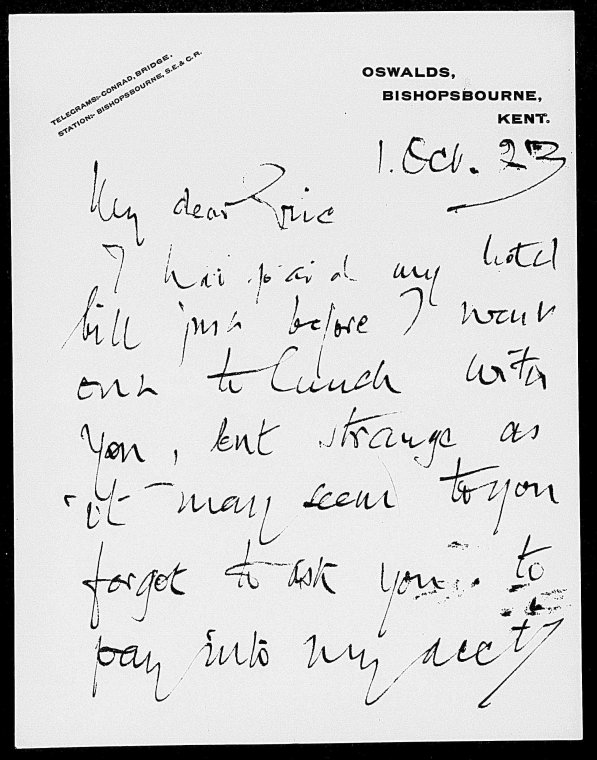 TELEGRAMS:- CONRAD, BRIDGE.
STATION:- BISHOPSBOURNE, S.E. & C.R.
OSWALDS,
BISHOPSBOURNE,
KENT.
1. Oct. 23
My dear Eric
I had paid my hotel
bill just before I went
out to lunch with
you, but strange as
it may seem to you
forgot to ask you to
pay into my acct